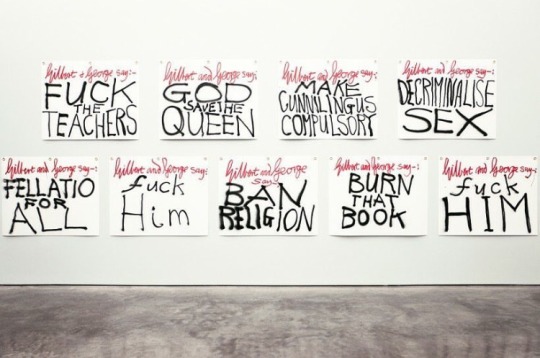 Gilbert & George say:-
FUCK
THE
TEACHERS
Gilbert and George say:
GOD
SAVE THE
QUEEN
Gilbert and George say:-
MAKE
CUNNILINGUS
COMPULSORY
Gilbert and George say:-
DECRIMINALISE
SEX
Gilbert and George say:-
FELLATIO
FOR
ALL
Gilbert and George say:-
fuck
Him
Gilbert and George
say:-
BAN
RELIGION
Gilbert and George say:-
BURN
THAT
BOOK
Gilbert and George say:-
fuck
HIM